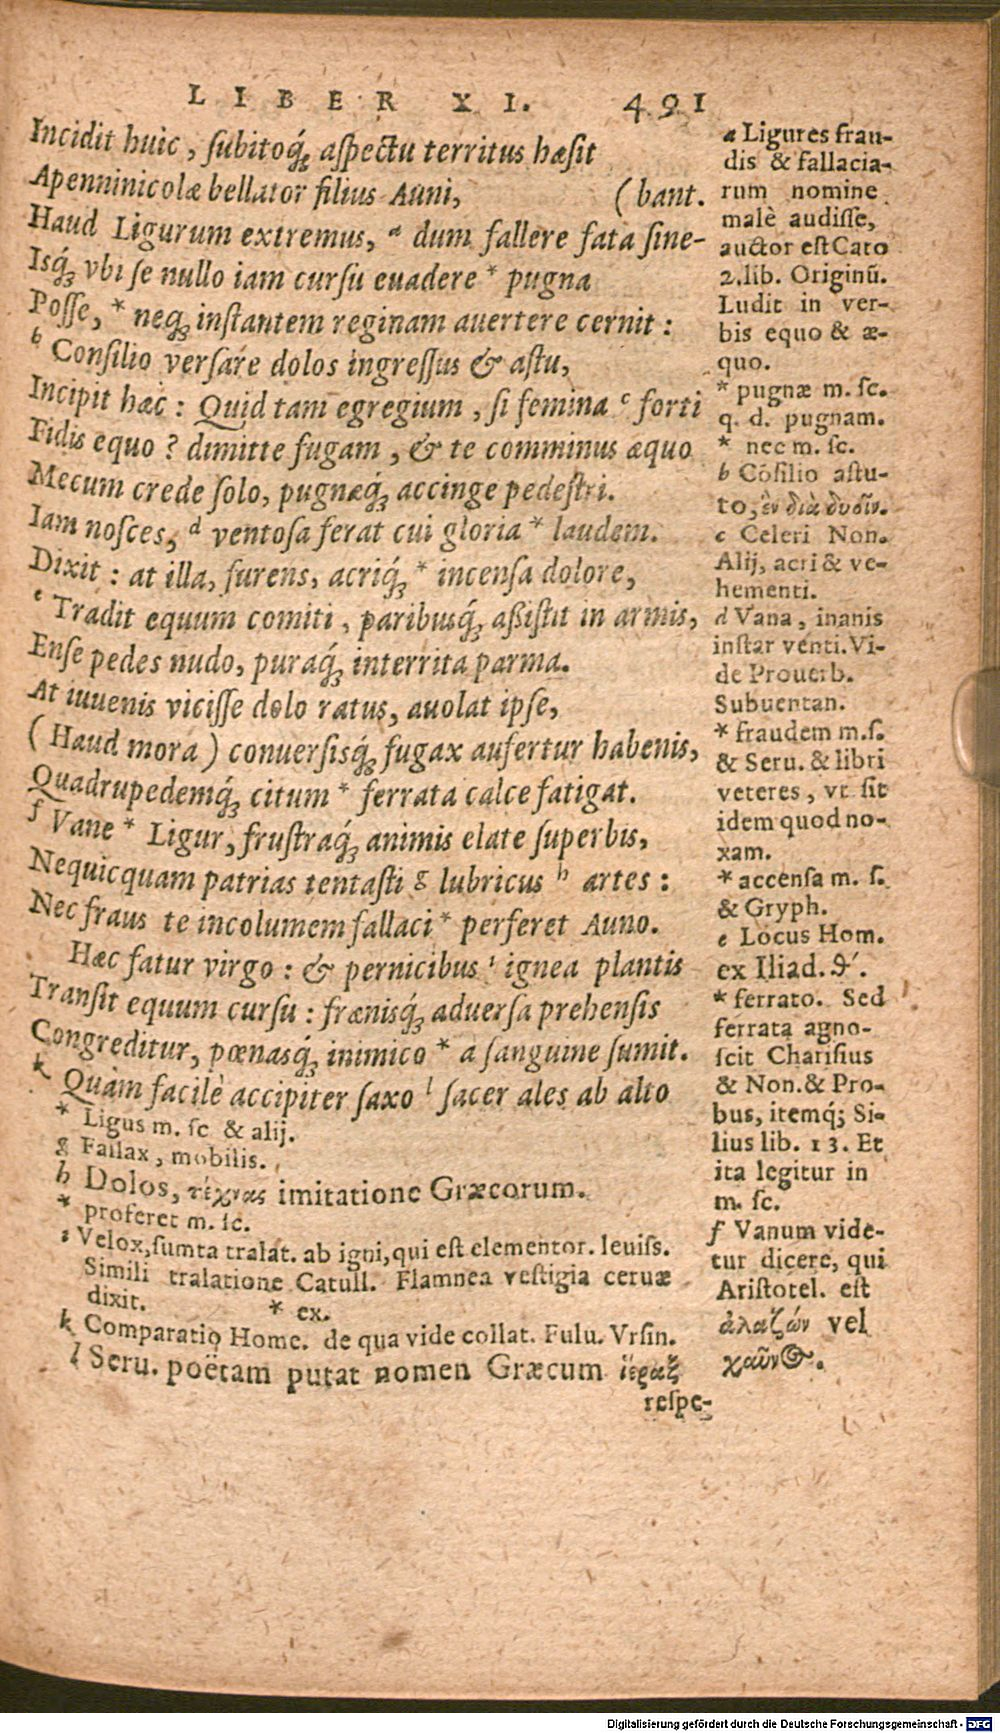 LIBER XI. 491
Incidit huic, ſubitoq́; aſpectu territus hæſit
Apenninicolæ bellator filius Auni, (bant.
Haud Ligurum extremus, a dum fallere fata ſine-
Isq́; vbi ſe nullo iam curſu euadere * pugna
Poſſe, * neq; inſtantem reginam auertere cernit:
b Conſilio verſare dolos ingreſſus & aſtu,
Incipit hæc: Quid tam egregium, ſi femina c forti
Fidis equo? dimitte fugam, & te comminus æquo
Mecum crede ſolo, pugnæq́; accinge pedeſtri.
Iam noſces, d ventoſa ferat cui gloria * laudem.
Dixit: at illa, furens, acriq́; * incenſa dolore,
e Tradit equum comiti, paribusq́; aßiſtit in armis,
Enſe pedes nudo, puraq́; interrita parma.
At iuuenis viciſſe dolo ratus, auolat ipſe,
(Haud mora) conuerſisq́; fugax aufertur habenis,
Quadrupedemq́; citum * ferrata calce fatigat.
f Vane * Ligur, fruſtraq́; animis elate ſuperbis,
Nequicquam patrias tentaſti g lubricus h artes:
Nec fraus te incolumem fallaci * perferet Auno.
Hæc fatur virgo: & pernicibus i ignea plantis
Tranſit equum curſu: frænisq́; aduerſa prehenſis
Congreditur, pœnasq́; inimico * a ſanguine ſumit.
k Quàm facilè accipiter ſaxo l ſacer ales ab alto
* Ligus m. ſc & alij.
g Fallax, mobilis.
h Dolos, τέχνας imitatione Græcorum.
* proferet m. ſc.
i Velox, ſumta tralat. ab igni, qui eſt elementor. leuiſs.
Simili tralatione Catull. Flamnea veſtigia ceruæ
dixit. * ex.
k Comparatio Home. de qua vide collat. Fulu. Vrſin.
l Seru. poëtam putat nomen Græcum ἱέραξ
reſpe-
a Ligures frau-
dis & fallacia-
rum nomine
malè audiſſe,
auctor eſt Cato
2. lib. Originũ.
Ludit in ver-
bis equo & æ-
quo.
* pugnæ m. ſc.
q. d. pugnam.
* nec m. ſc.
b Cõſilio aſtu-
to, ἓν διὰ δυοῖν.
c Celeri Non.
Alij, acri & ve-
hementi.
d Vana, inanis
inſtar venti. Vi-
de Prouerb.
Subuentan.
* fraudem m. ſ.
& Seru. & libri
veteres, vt ſit
idem quod no-
xam.
* accenſa m. ſ.
& Gryph.
e Locus Hom.
ex Iliad. δʹ.
* ferrato. Sed
ferrata agno-
ſcit Chariſius
& Non. & Pro-
bus, itemq́; Si-
lius lib. 13. Et
ita legitur in
m. ſc.
f Vanum vide-
tur dicere, qui
Ariſtotel. eſt
ἀλαζών vel
χαῦνος.
Digitalisierung gefördert durch die Deutsche Forschungsgemeinschaft - DFG